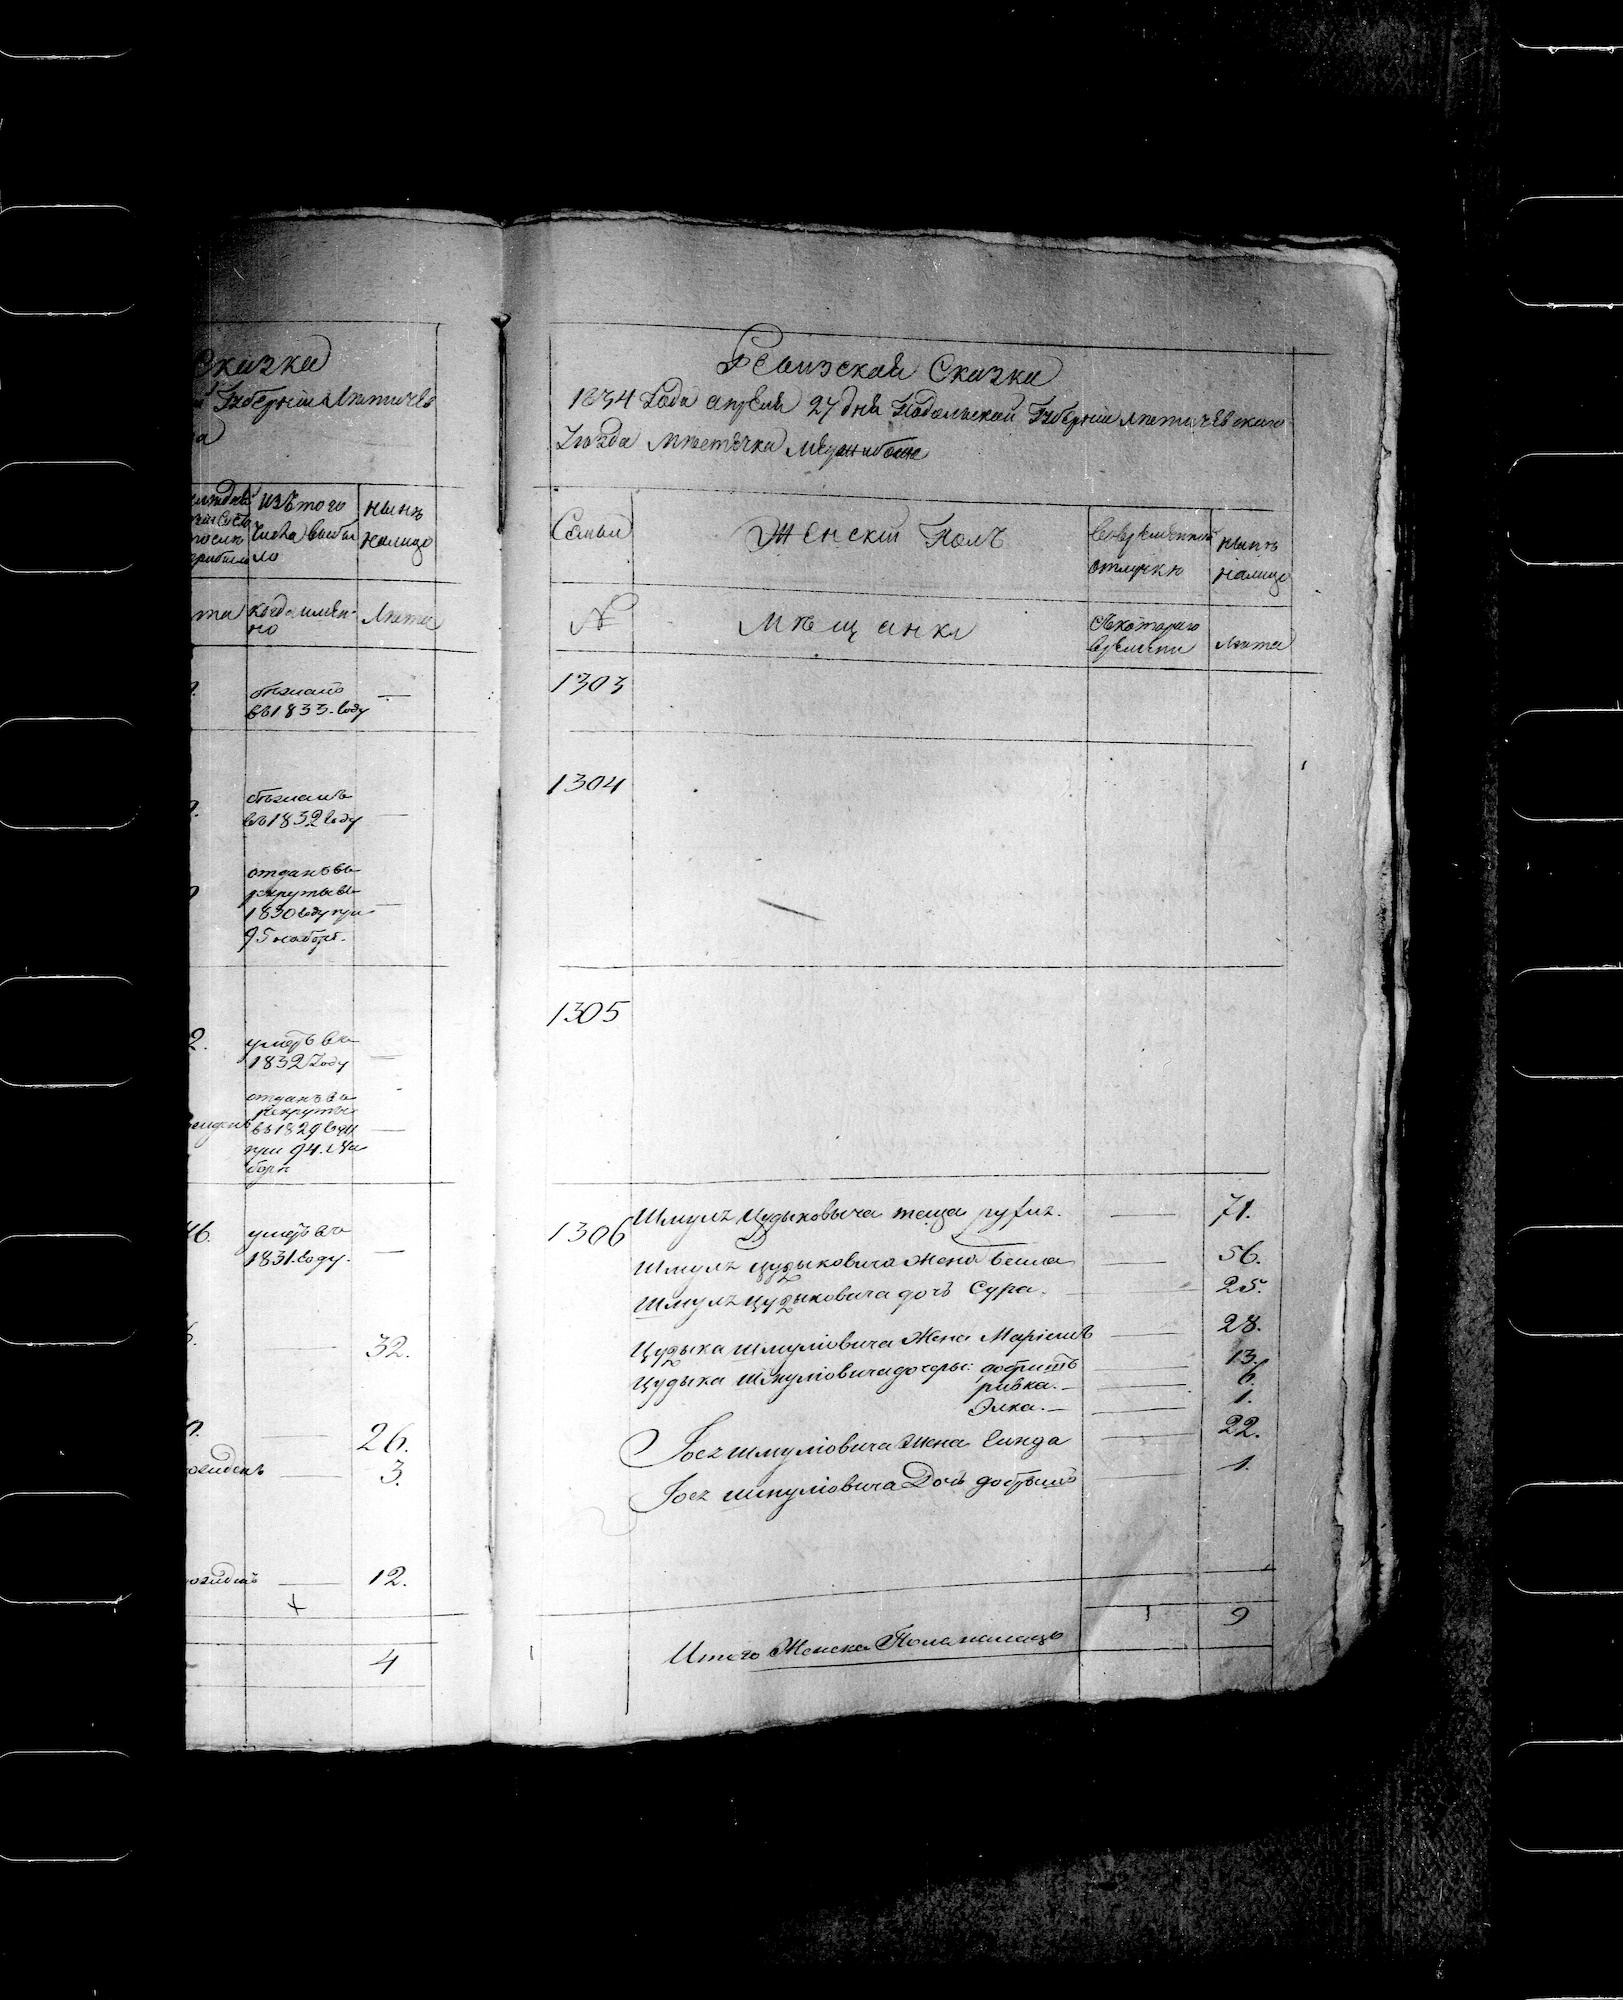 Сказка
Губернии Летичев
изъ того
числа выбы
ло
нынѣ
налицо
когда имен-
но
Лѣта
бѣжалъ
въ 1833. году
—
бѣжалъ
въ 1832 году
—
отданъ въ
рекруты въ
1830 году при
95 наборѣ.
—
2.
умеръ въ
1832 году
—
отданъ въ
рекруты
въ 1829 году
при 94. на
борѣ
—
46.
умеръ въ
1831. году.
—
— 32.
— 26.
— 3.
— 12.
4
Ревизская Сказка
1834 Года апреля 27 дня Подольской Губернии Летичевского
Уезда местечка Меджибожа
Семьи
Женскій Полъ
во временной
отлучке
нынѣ
налицо
№
Мѣщанки
Съ которого
времени
Лѣта
1303
1304
1305
1306 Шмуля Цудыковича теща — 71.
Шмуля Цудыковича жена Бейла — 56.
Шмуля Цудыковича дочь Сура. — 25.
Цудыка Шмуліовича Жена Маріемъ — 28.
Цудыка Шмуліовича дочеры: добришъ — 13.
ривка. — 6.
Элка. — 1.
Іося Шмуліовича Жена Гинда — 22.
Іося Шмуліовича Дочь добрышъ — 1.
Итого Женска Пола налицо 9